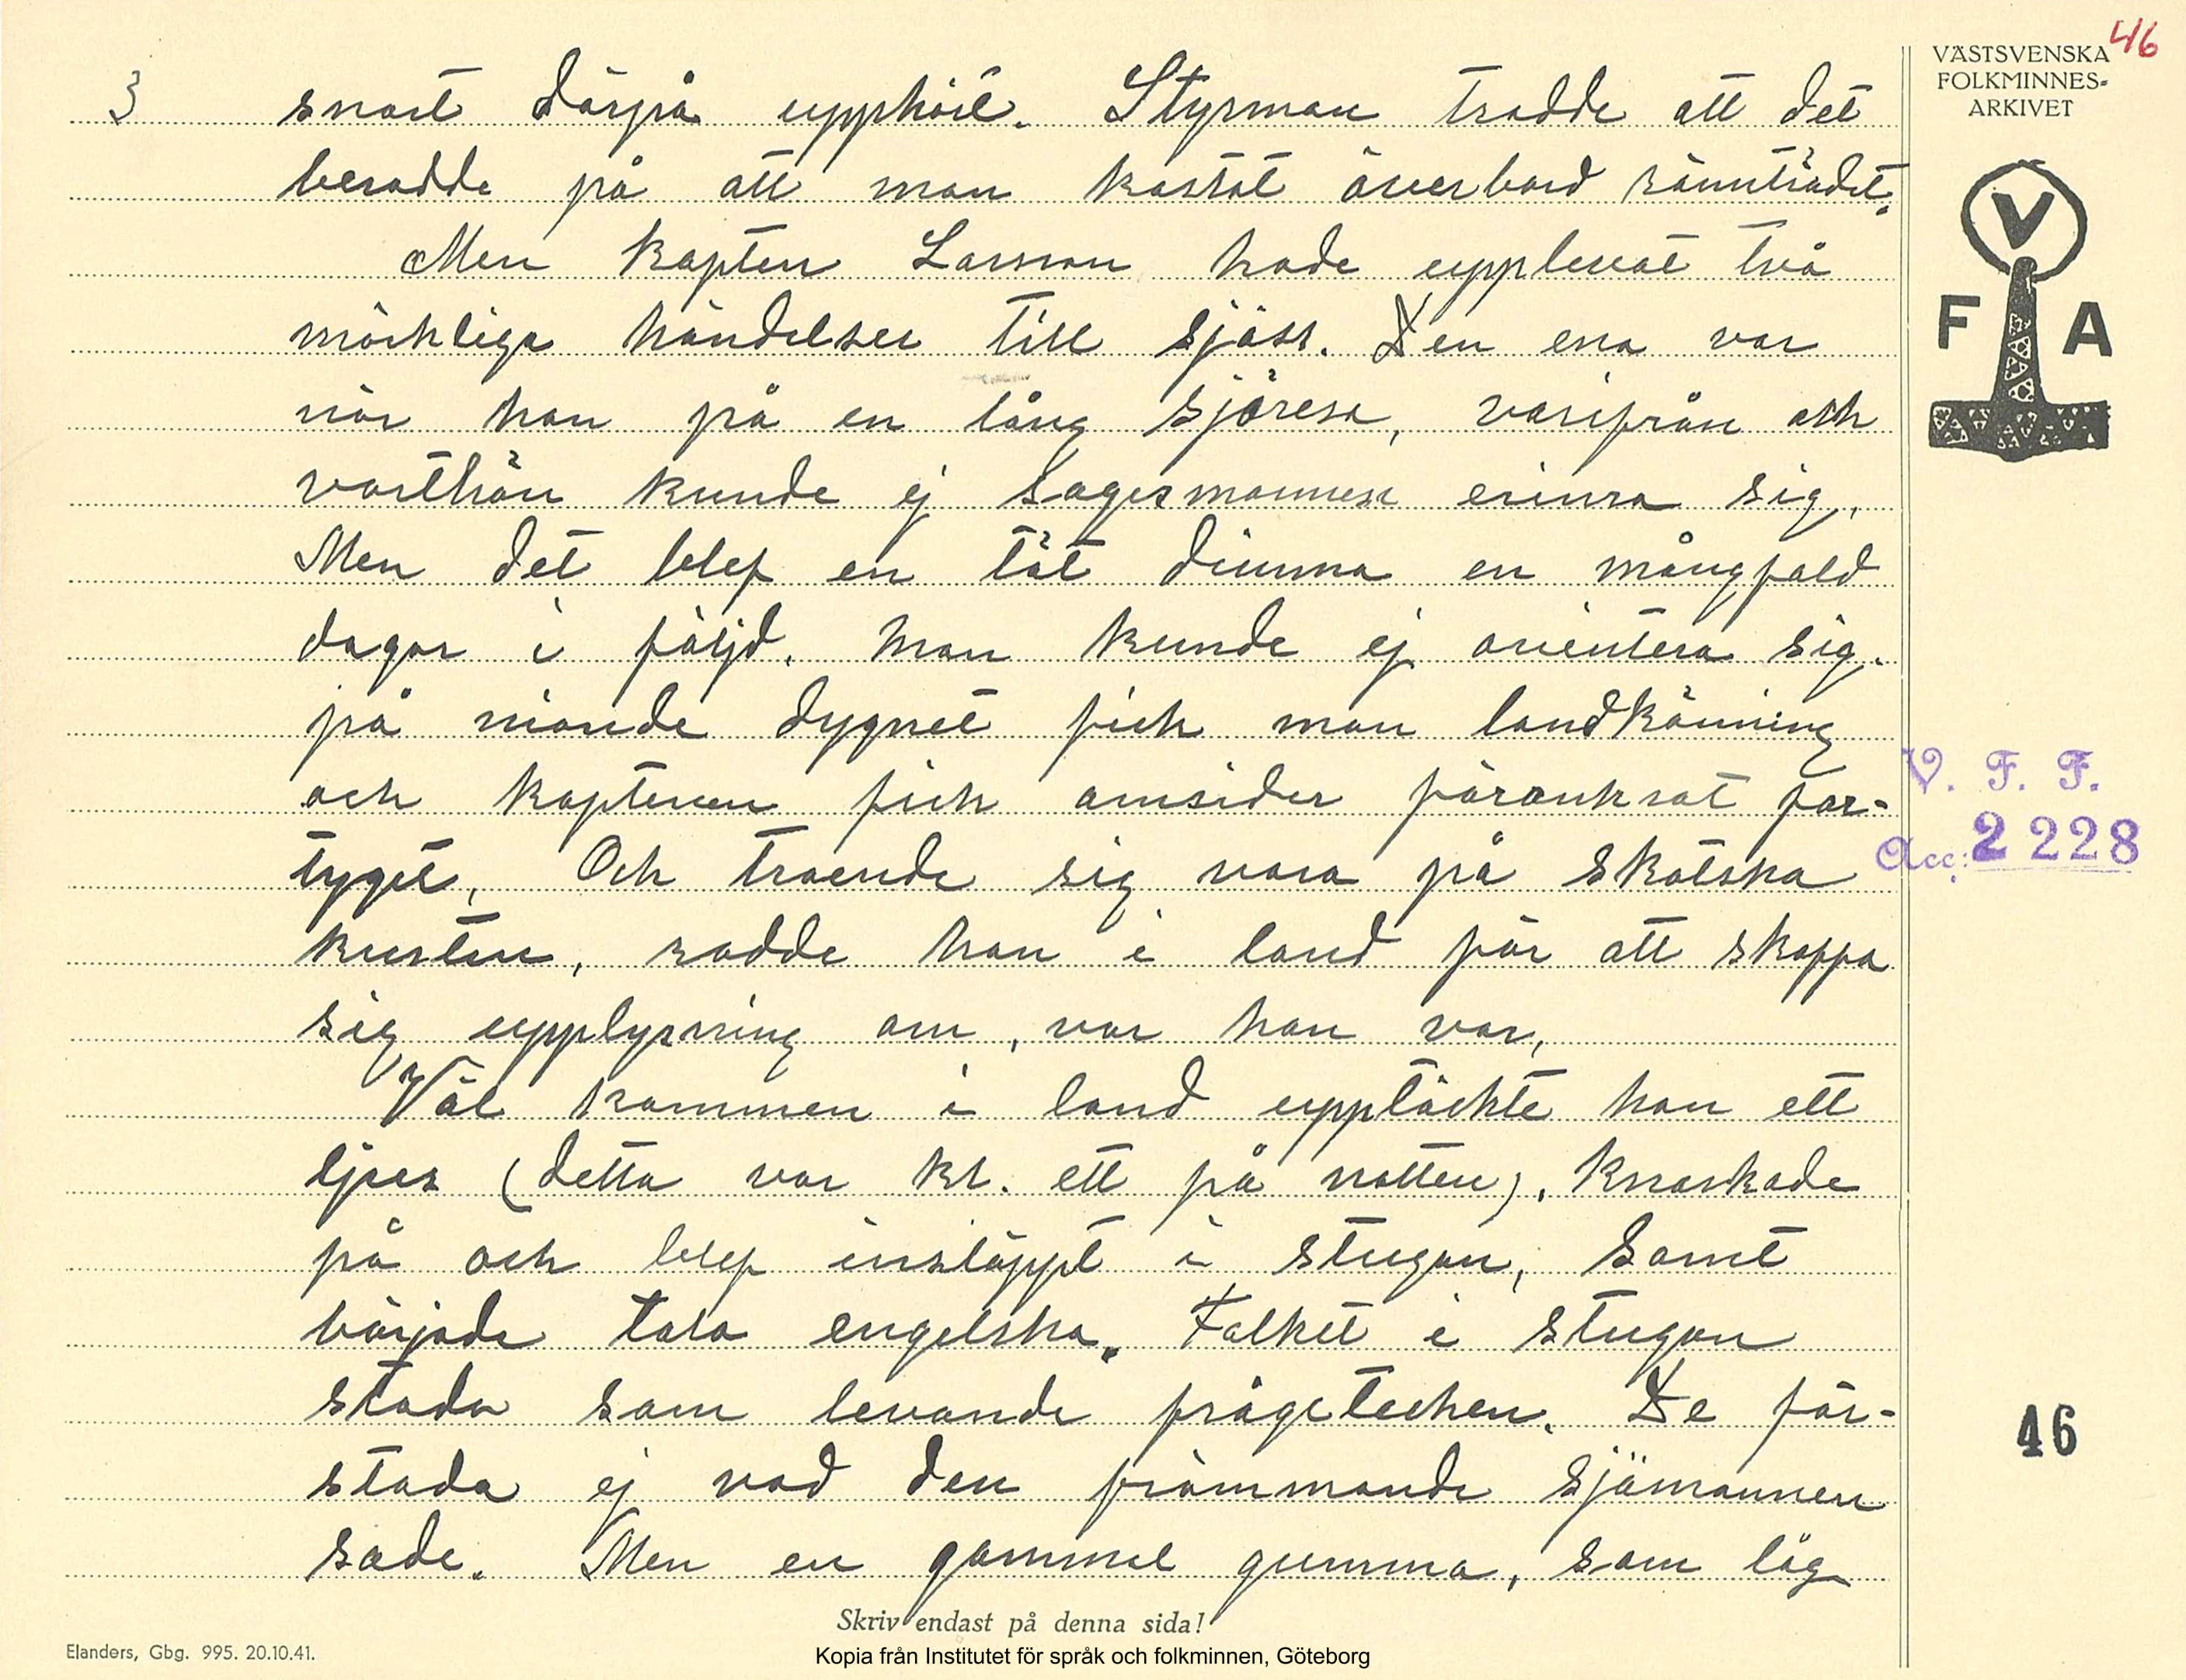 46
VÄSTSVENSKA
FOLKMINNES-
ARKIVET
V
F A
3 snart därpå upphöil. Styrman trodde att det
berodde på att man kastat överbord rännträdet.
Men Kapten Larsson hade upplevat två
märkliga händelser till sjöss. Den ena var
när han på en lång sjöresa, varifrån och
varthän kunde ej sagesmannen erinra sig.
Men det blef en tät dimma en mångfald
dagar i följd. Man kunde ej orientera sig.
på nionde dygnet fick man landkänning
och kaptenen fick omsider förankrat far-
tyget. Och troende sig vara på Skotska
kusten, rodde han i land för att skaffa
sig upplysning om, var han var.
Väl kommen i land upptäckte han ett
ljus (detta var kl. ett på natten). Knackade
på och blef insläppt i stugan, samt
började tala engelska. Folket i stugan
stodo som levande frågetecken. De för-
stodo ej vad den främmande sjömannen
sade. Men en gammal gumma, som låg
V. F. F.
Acc: 2 228
46
Skriv endast på denna sida!
Elanders, Gbg. 995. 20.10.41.
Kopia från Institutet för språk och folkminnen, Göteborg